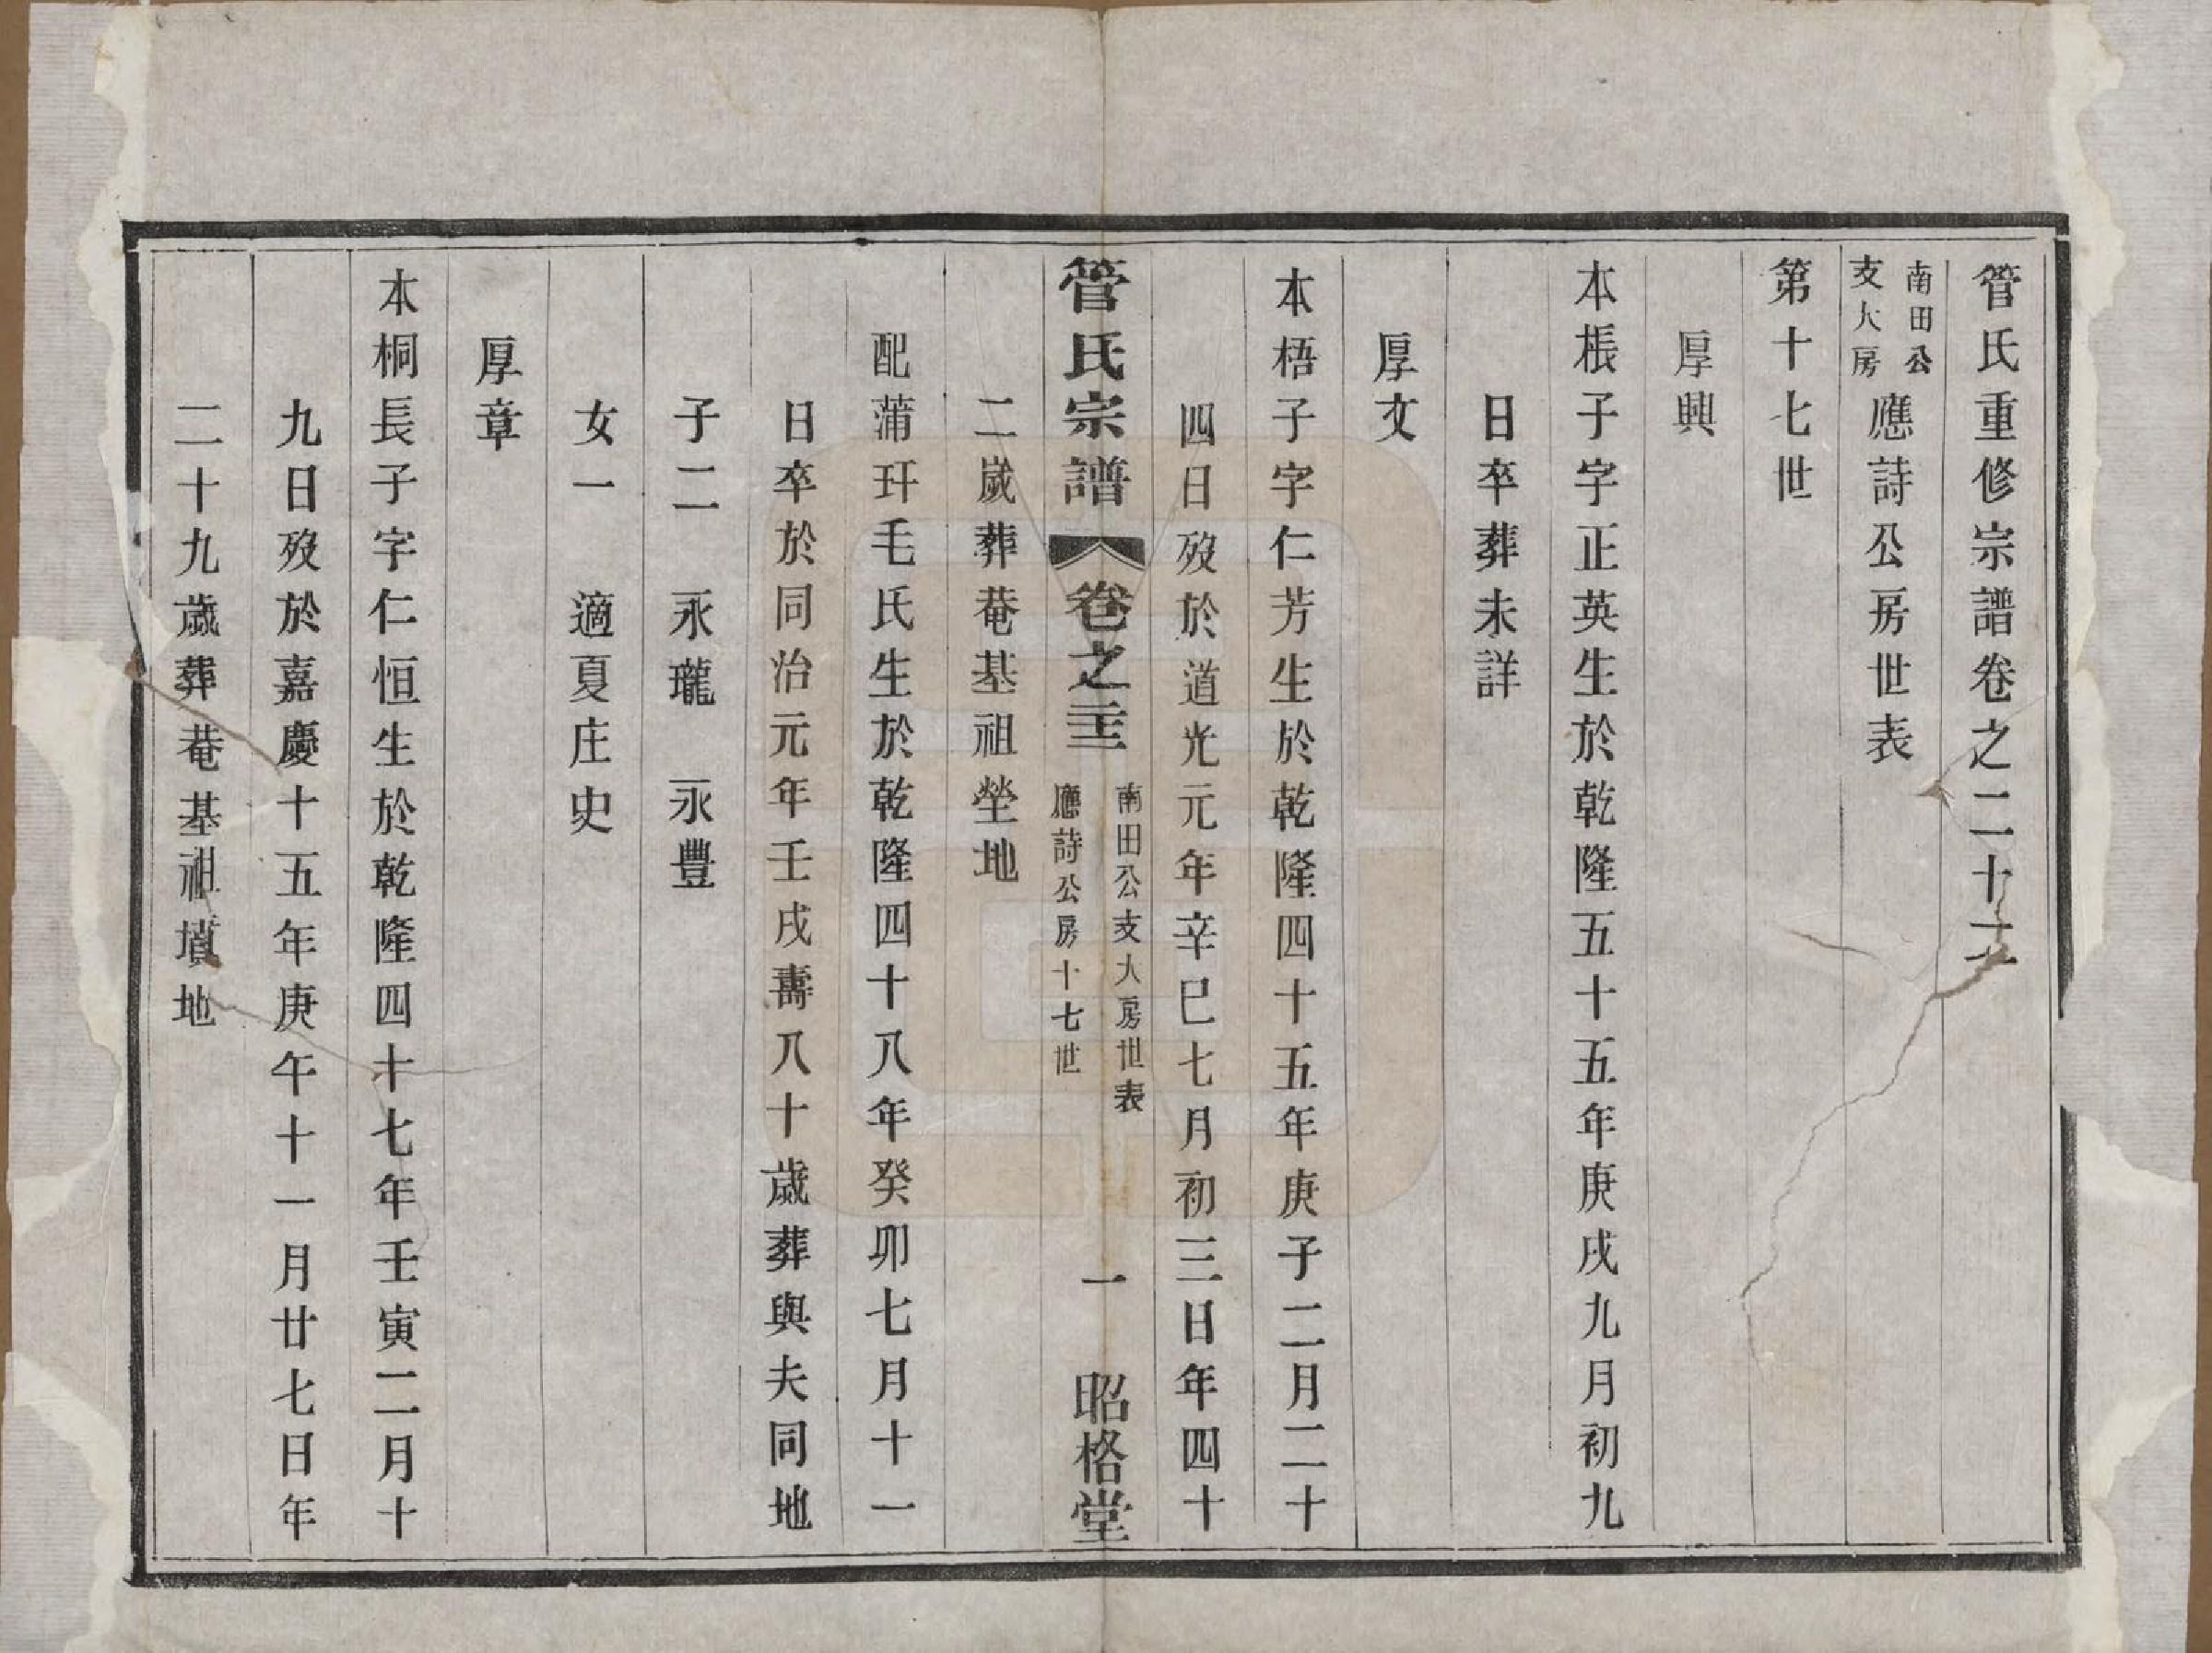 管氏重修宗譜卷之二十二
南田公
支大房
應詩公房世表
第十七世
厚興
本棖子字正英生於乾隆五十五年庚戌九月初九
日卒葬未詳
厚文
本梧子字仁芳生於乾隆四十五年庚子二月二十
四日歿於道光元年辛巳七月初三日年四十
管氏宗譜
卷之二十二
南田公支大房世表
應詩公房十七世
一
昭格堂
二歲葬菴基祖塋地
配蒲玕毛氏生於乾隆四十八年癸卯七月十一
日卒於同治元年壬戌壽八十歲葬與夫同地
子二 永瓏 永豐
女一 適夏庄史
厚章
本桐長子字仁恒生於乾隆四十七年壬寅二月十
九日歿於嘉慶十五年庚午十一月廿七日年
二十九歲葬菴基祖墳地